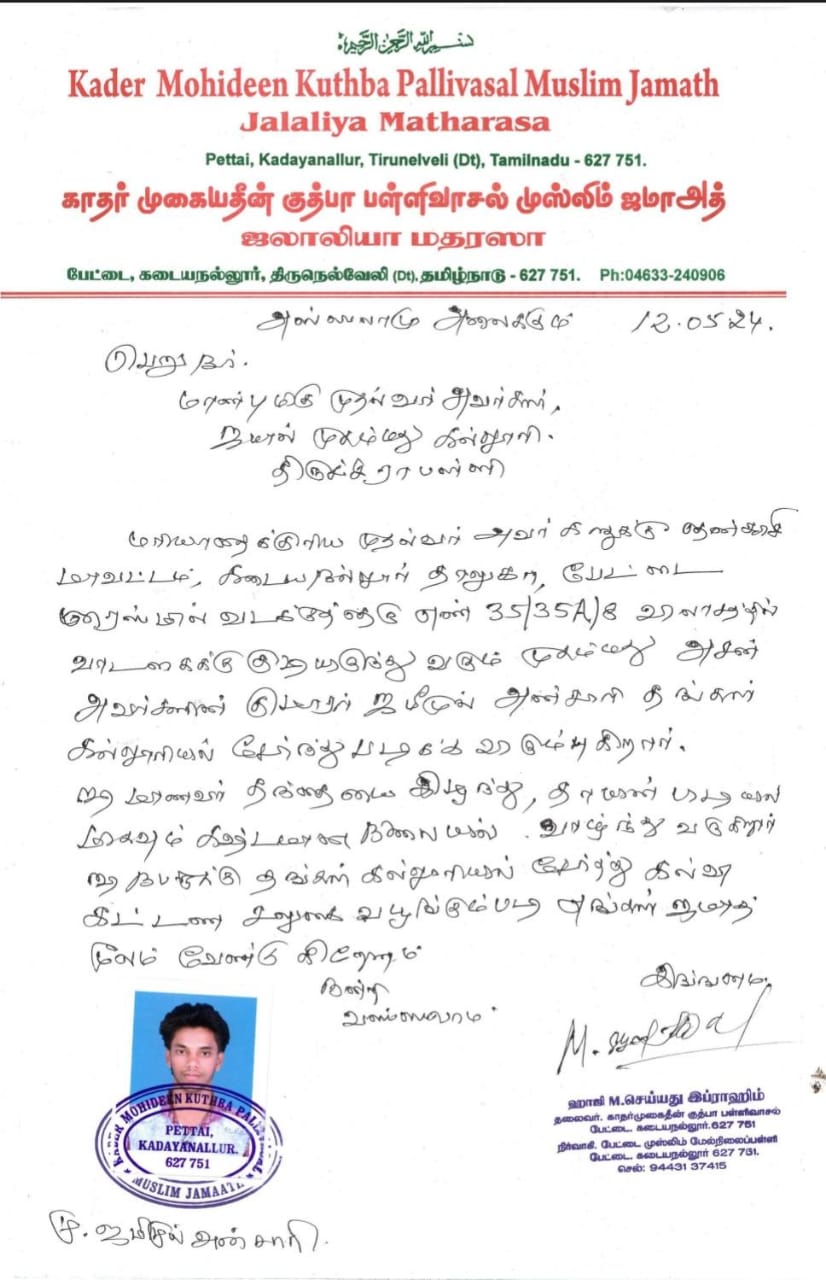 بسم الله الرحمن الرحيم
Kader Mohideen Kuthba Pallivasal Muslim Jamath
Jalaliya Matharasa
Pettai, Kadayanallur, Tirunelveli (Dt), Tamilnadu - 627 751.
காதர் முகையதீன் குத்பா பள்ளிவாசல் முஸ்லிம் ஜமாஅத்
ஜலாலியா மதரஸா
பேட்டை, கடையநல்லூர், திருநெல்வேலி (Dt), தமிழ்நாடு - 627 751. Ph:04633-240906
அஸ்ஸலாமு அலைக்கும் 12.05.24.
பெறுநர்.
மாண்புமிகு முதல்வர் அவர்கள்,
ஜமால் முகம்மது கல்லூரி.
திருச்சிராபள்ளி
மரியாதைக்குரிய முதல்வர் அவர்களுக்கு தென்காசி
மாவட்டம், கடையநல்லூர் தாலுகா, பேட்டை
வடக்குத்தெரு எண் 35/35A/8 விலாசத்தில்
வாடகைக்கு குடியிருந்து வரும் முகம்மது அசன்
அவர்களின் குமாரர் ஜமீமுல் அன்சாரி தங்கள்
கல்லூரியில் சேர்ந்து படிக்க விரும்புகிறார்.
இம் மாணவர் தந்தையை இழந்து, தாயின் பிடியில்
மிகவும் கஷ்டமான நிலையில் வாழ்ந்து வருகிறார்
தங்கள் கல்லூரியில் சேர்த்து கல்வி
கட்டண சலுகை வழங்கும்படி எங்கள் ஜமாத்
மூலம் வேண்டுகிறோம்
நன்றி இங்ஙனம்.
வஸ்ஸலாம்.
M.
ஹாஜி M.செய்யது இப்ராஹிம்
தலைவர். காதர்முகைதீன் குத்பா பள்ளிவாசல்
பேட்டை. கடையநல்லூர்.627 751
நிர்வாகி. பேட்டை முஸ்லிம் மேல்நிலைப்பள்ளி
பேட்டை. கடையநல்லூர் 627 751.
செல்: 94431 37415
KADER MOHIDEEN KUTHBA PALLIVASAL
PETTAI,
KADAYANALLUR.
627 751
MUSLIM JAMAATH
மு. ஜமீமுல் அன்சாரி.